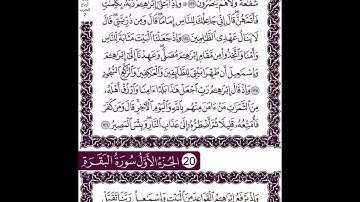 شَفَٰعَةٌ وَلَا هُمْ يُنصَرُونَ ۞ وَإِذِ ٱبْتَلَىٰٓ إِبْرَٰهِـۧمَ رَبُّهُۥ بِكَلِمَٰتٍ
فَأَتَمَّهُنَّ قَالَ إِنِّى جَاعِلُكَ لِلنَّاسِ إِمَامًا قَالَ وَمِن ذُرِّيَّتِى قَالَ
لَا يَنَالُ عَهْدِى ٱلظَّٰلِمِينَ وَإِذْ جَعَلْنَا ٱلْبَيْتَ مَثَابَةً لِّلنَّاسِ
وَأَمْنًا وَٱتَّخِذُوا۟ مِن مَّقَامِ إِبْرَٰهِـۧمَ مُصَلًّى وَعَهِدْنَآ إِلَىٰٓ إِبْرَٰهِـۧمَ
وَإِسْمَٰعِيلَ أَن طَهِّرَا بَيْتِىَ لِلطَّآئِفِينَ وَٱلْعَٰكِفِينَ وَٱلرُّكَّعِ ٱلسُّجُودِ
وَإِذْ قَالَ إِبْرَٰهِـۧمُ رَبِّ ٱجْعَلْ هَٰذَا بَلَدًا ءَامِنًا وَٱرْزُقْ أَهْلَهُۥ
مِنَ ٱلثَّمَرَٰتِ مَنْ ءَامَنَ مِنْهُم بِٱللَّهِ وَٱلْيَوْمِ ٱلْـَٔاخِرِ قَالَ وَمَن كَفَرَ
فَأُمَتِّعُهُۥ قَلِيلًا ثُمَّ أَضْطَرُّهُۥٓ إِلَىٰ عَذَابِ ٱلنَّارِ وَبِئْسَ ٱلْمَصِيرُ
20 الجزء الأول سورة البقرة
وَإِذْ يَرْفَعُ إِبْرَٰهِـۧمُ ٱلْقَوَاعِدَ مِنَ ٱلْبَيْتِ وَإِسْمَٰعِيلُ رَبَّنَا تَقَبَّلْ